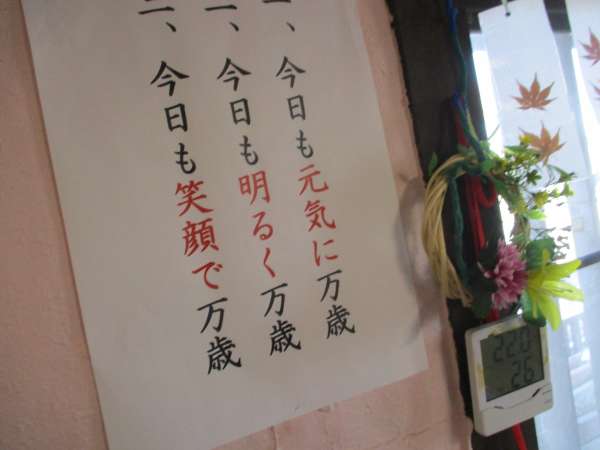 一、今日も元気に万歳
一、今日も明るく万歳
二、今日も笑顔で万歳
220
26